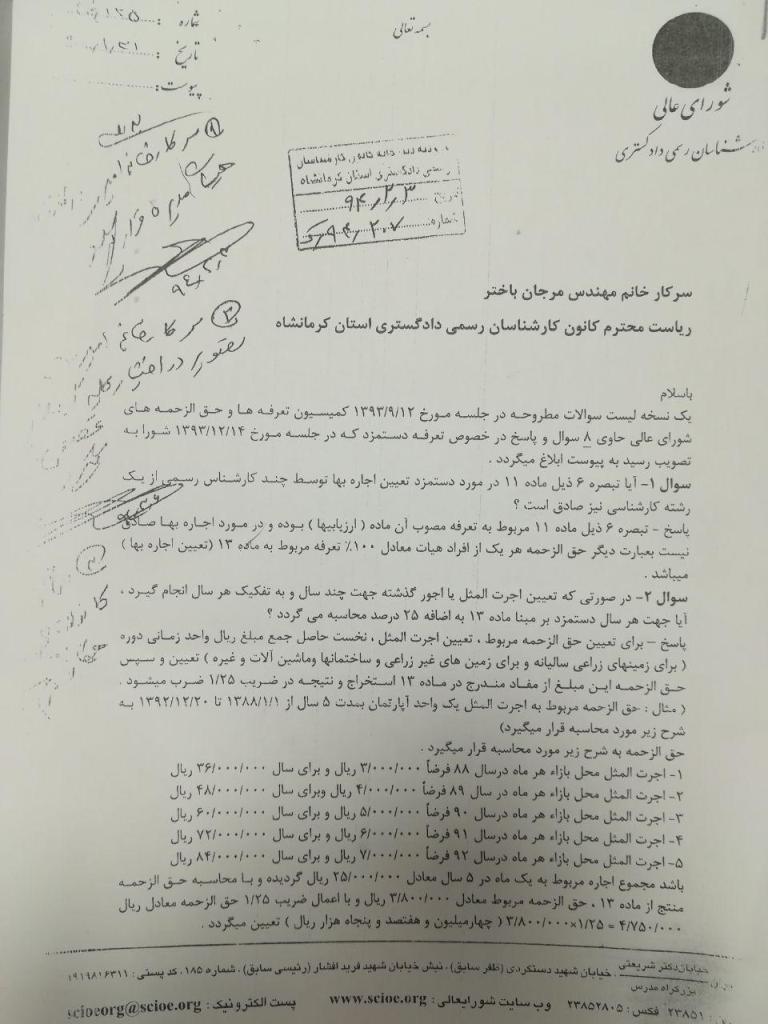 بسمه تعالی
شماره :
تاریخ :
پیوست :
شورای عالی
کارشناسان رسمی دادگستری
رسمی دادگستری استان کرمانشاه
تاریخ ۹۴/۲/۳
شماره
سرکار خانم مهندس مرجان باختر
ریاست محترم کانون کارشناسان رسمی دادگستری استان کرمانشاه
باسلام
یک نسخه لیست سوالات مطروحه در جلسه مورخ ۱۳۹۳/۹/۱۲ کمیسیون تعرفه ها و حق الزحمه های
شورای عالی حاوی ۸ سوال و پاسخ در خصوص تعرفه دستمزد که در جلسه مورخ ۱۳۹۳/۱۲/۱۴ شورا به
تصویب رسید به پیوست ابلاغ میگردد .
سوال ۱- آیا تبصره ۶ ذیل ماده ۱۱ در مورد دستمزد تعیین اجاره بها توسط چند کارشناس رسمی از یک
رشته کارشناسی نیز صادق است ؟
پاسخ - تبصره ۶ ذیل ماده ۱۱ مربوط به تعرفه مصوب آن ماده ( ارزیابیها ) بوده و در مورد اجاره بها صادق
نیست بعبارت دیگر حق الزحمه هر یک از افراد هیات معادل ۱۰۰٪ تعرفه مربوط به ماده ۱۳ (تعیین اجاره بها )
میباشد .
سوال ۲- در صورتی که تعیین اجرت المثل یا اجور گذشته جهت چند سال و به تفکیک هر سال انجام گیرد ،
آیا جهت هر سال دستمزد بر مبنا ماده ۱۳ به اضافه ۲۵ درصد محاسبه می گردد ؟
پاسخ – برای تعیین حق الزحمه مربوط ، تعیین اجرت المثل ، نخست حاصل جمع مبلغ ریال واحد زمانی دوره
( برای زمینهای زراعی سالیانه و برای زمین های غیر زراعی و ساختمانها وماشین آلات و غیره ) تعیین و سپس
حق الزحمه این مبلغ از مفاد مندرج در ماده ۱۳ استخراج و نتیجه در ضریب ۱/۲۵ ضرب میشود .
( مثال : حق الزحمه مربوط به اجرت المثل یک واحد آپارتمان بمدت ۵ سال از ۱۳۸۸/۱/۱ تا ۱۳۹۲/۱۲/۲۰ به
شرح زیر مورد محاسبه قرار میگیرد)
حق الزحمه به شرح زیر مورد محاسبه قرار میگیرد .
۱- اجرت المثل محل بازاء هر ماه درسال ۸۸ فرضاً ۳/۰۰۰/۰۰۰ ریال و برای سال ۳۶/۰۰۰/۰۰۰ ریال
۲- اجرت المثل محل بازاء هر ماه در سال ۸۹ فرضاً ۴/۰۰۰/۰۰۰ ریال وبرای سال ۴۸/۰۰۰/۰۰۰ ریال
۳- اجرت المثل محل بازاء هر ماه درسال ۹۰ فرضاً ۵/۰۰۰/۰۰۰ ریال و برای سال ۶۰/۰۰۰/۰۰۰ ریال
۴- اجرت المثل محل بازاء هر ماه درسال ۹۱ فرضاً ۶/۰۰۰/۰۰۰ ریال و برای سال ۷۲/۰۰۰/۰۰۰ ریال
۵- اجرت المثل محل بازاء هر ماه درسال ۹۲ فرضاً ۷/۰۰۰/۰۰۰ ریال و برای سال ۸۴/۰۰۰/۰۰۰ ریال
باشد مجموع اجاره مربوط به یک ماه در ۵ سال معادل ۲۵/۰۰۰/۰۰۰ ریال گردیده و با محاسبه حق الزحمه
منتج از ماده ۱۳ ، حق الزحمه مربوط معادل ۳/۸۰۰/۰۰۰ ریال و با اعمال ضریب ۱/۲۵ حق الزحمه معادل ریال
۳/۸۰۰/۰۰۰×۱/۲۵ = ۴/۷۵۰/۰۰۰ ( چهارمیلیون و هفتصد و پنجاه هزار ریال ) تعیین میگردد .
خیابان دکتر شریعتی ، خیابان شهید دستگردی (ظفر سابق) ، نبش خیابان شهید فرید افشار (رئیسی سابق) ، شماره ۱۸۵، کد پستی : ۱۹۱۹۸۱۶۳۱۱
بزرگراه مدرس
۲۳۸۵۱ فکس : ۲۳۸۵۲۸۰۵ وب سایت شورایعالی : www.scioe.org پست الکترونیک : scioeorg@scioe.org